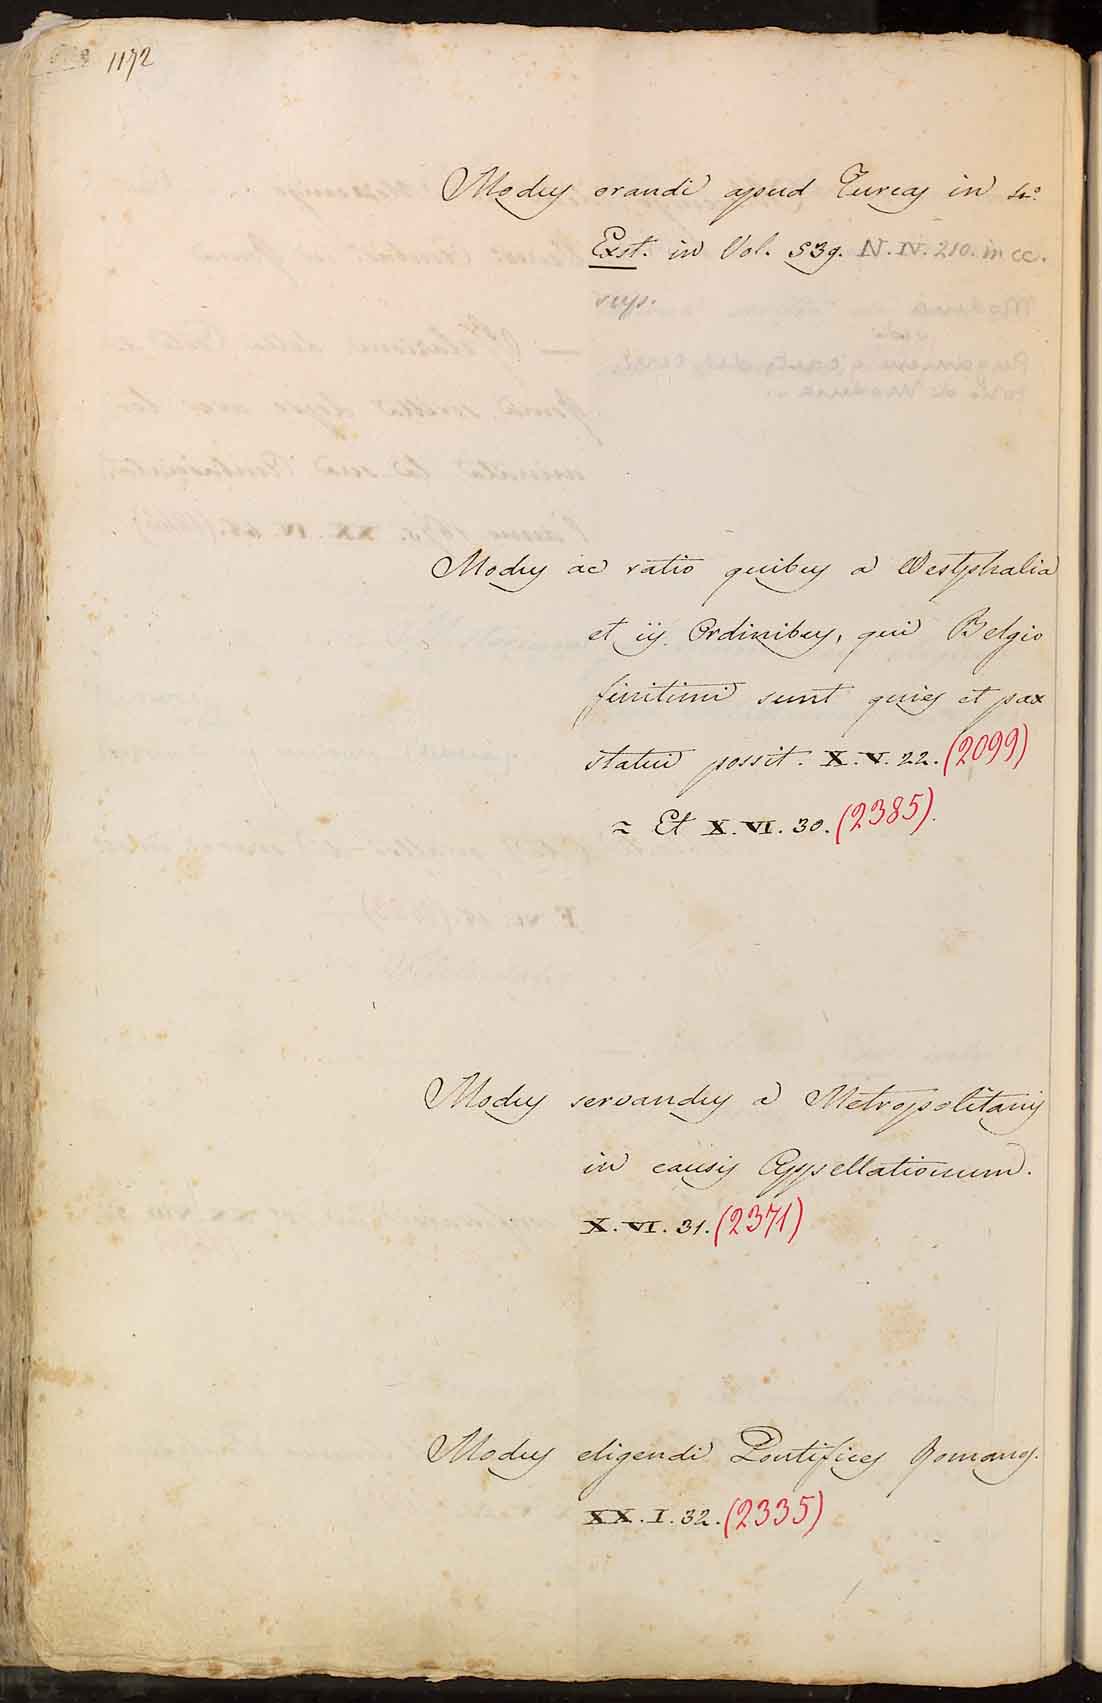 1172
Modus orandi apud Turcas in 4.°
Exst. in Vol. 539. N. IV. 210. in cc.
Modus ac ratio quibus a Westphalia
et iis Ordinibus, qui Belgio
finitimi sunt quies et pax
statui possit. X. V. 22. (2099)
= Et X. VI. 30. (2385).
Modus servandus a Metropolitanis
in causis Appellationum.
X. VI. 31. (2371)
Modus eligendi Pontifices Romanos.
XX. I. 32. (2335)